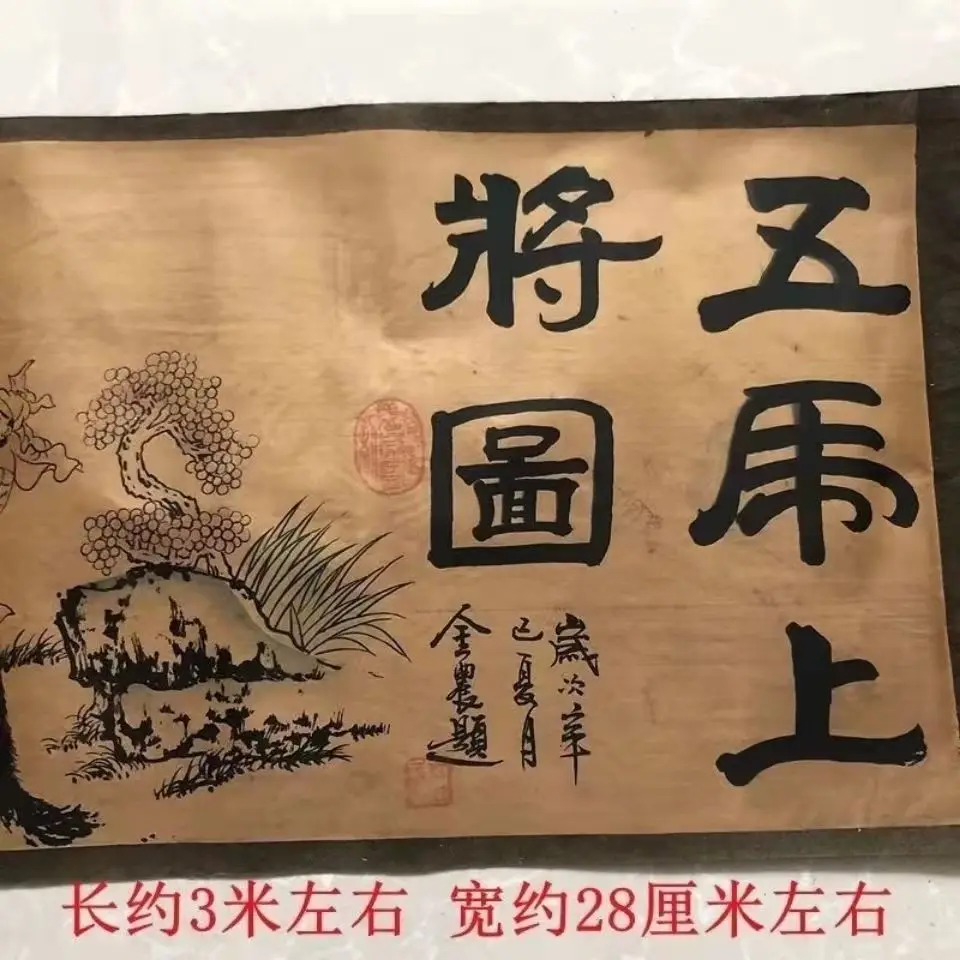 五虎上
將圖
歲次辛
已夏月
金農題
长约3米左右 宽约28厘米左右